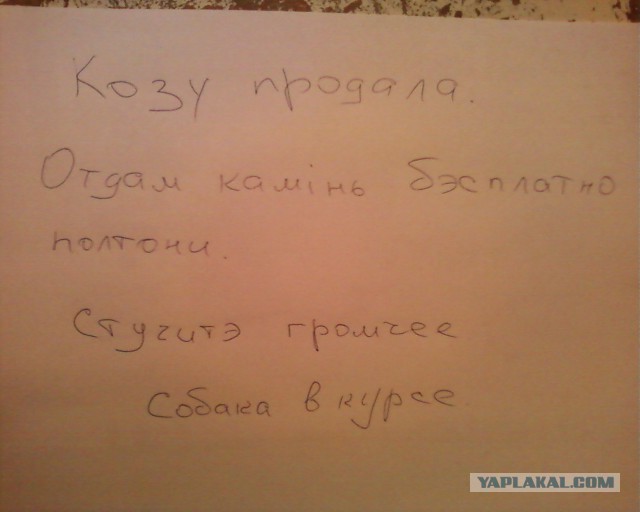 Козу продала.
Отдам камінь бэсплатно
полтони.
Стучитэ громчее
Собака в курсе.
YAPLAKAL.COM